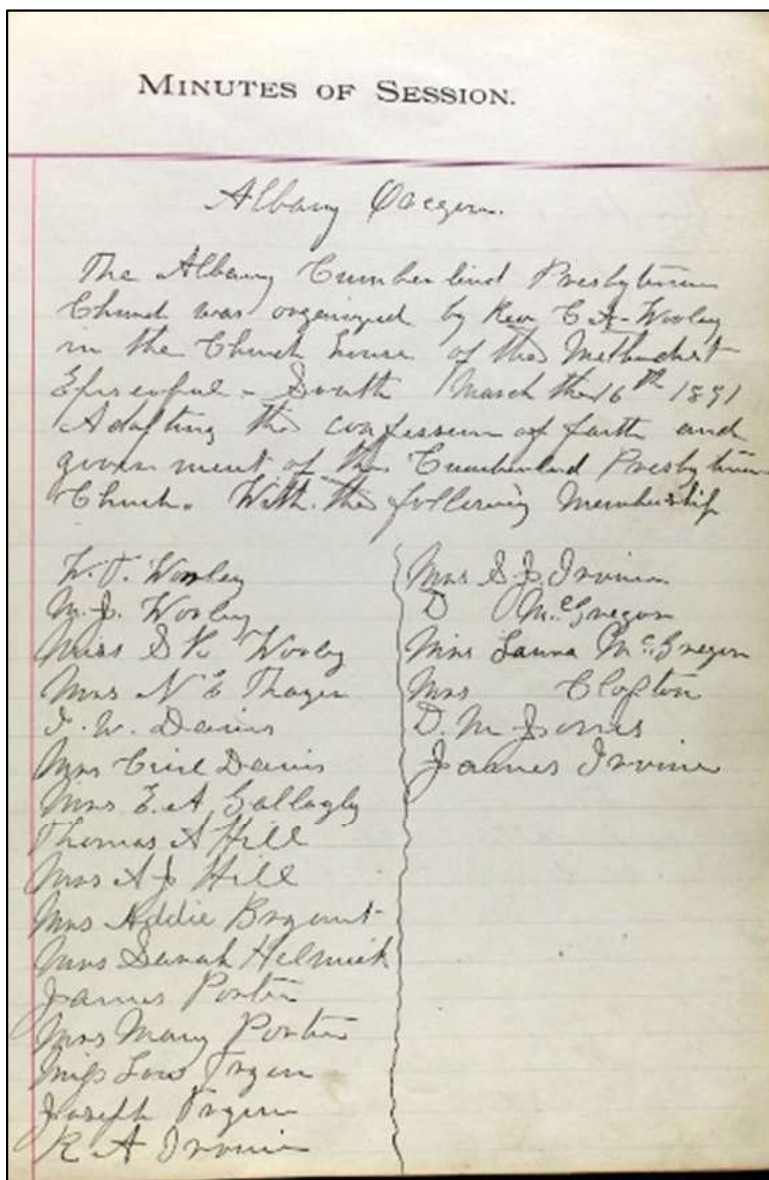 MINUTES OF SESSION.
Albany Oregon.
The Albany Cumberlind Presbyterian
Church was organized by Rev C A Wooley
in the Church house of the Methodist
Episcopal - South March the 16th 1891
Adopting the confession of faith and
government of the Cumberland Presbyterian
Church. With the following Membership
W. T. Wooley
M. J. Wooley
Miss S K Wooley
Mrs N E Thayer
I. W. Davis
Mrs Davis
Mrs E. A Gallagly
Thomas A Hill
Mrs A J Hill
Mrs Addie Bryant
Mrs Sarah Helmick
James Porter
Mrs Mary Porter
Miss Lou
Joseph
R A Irvine
Mrs S. J. Irvine
D McGregor
Mrs Laura McGregor
Mrs Clopton
D. M. Jones
James Irvine